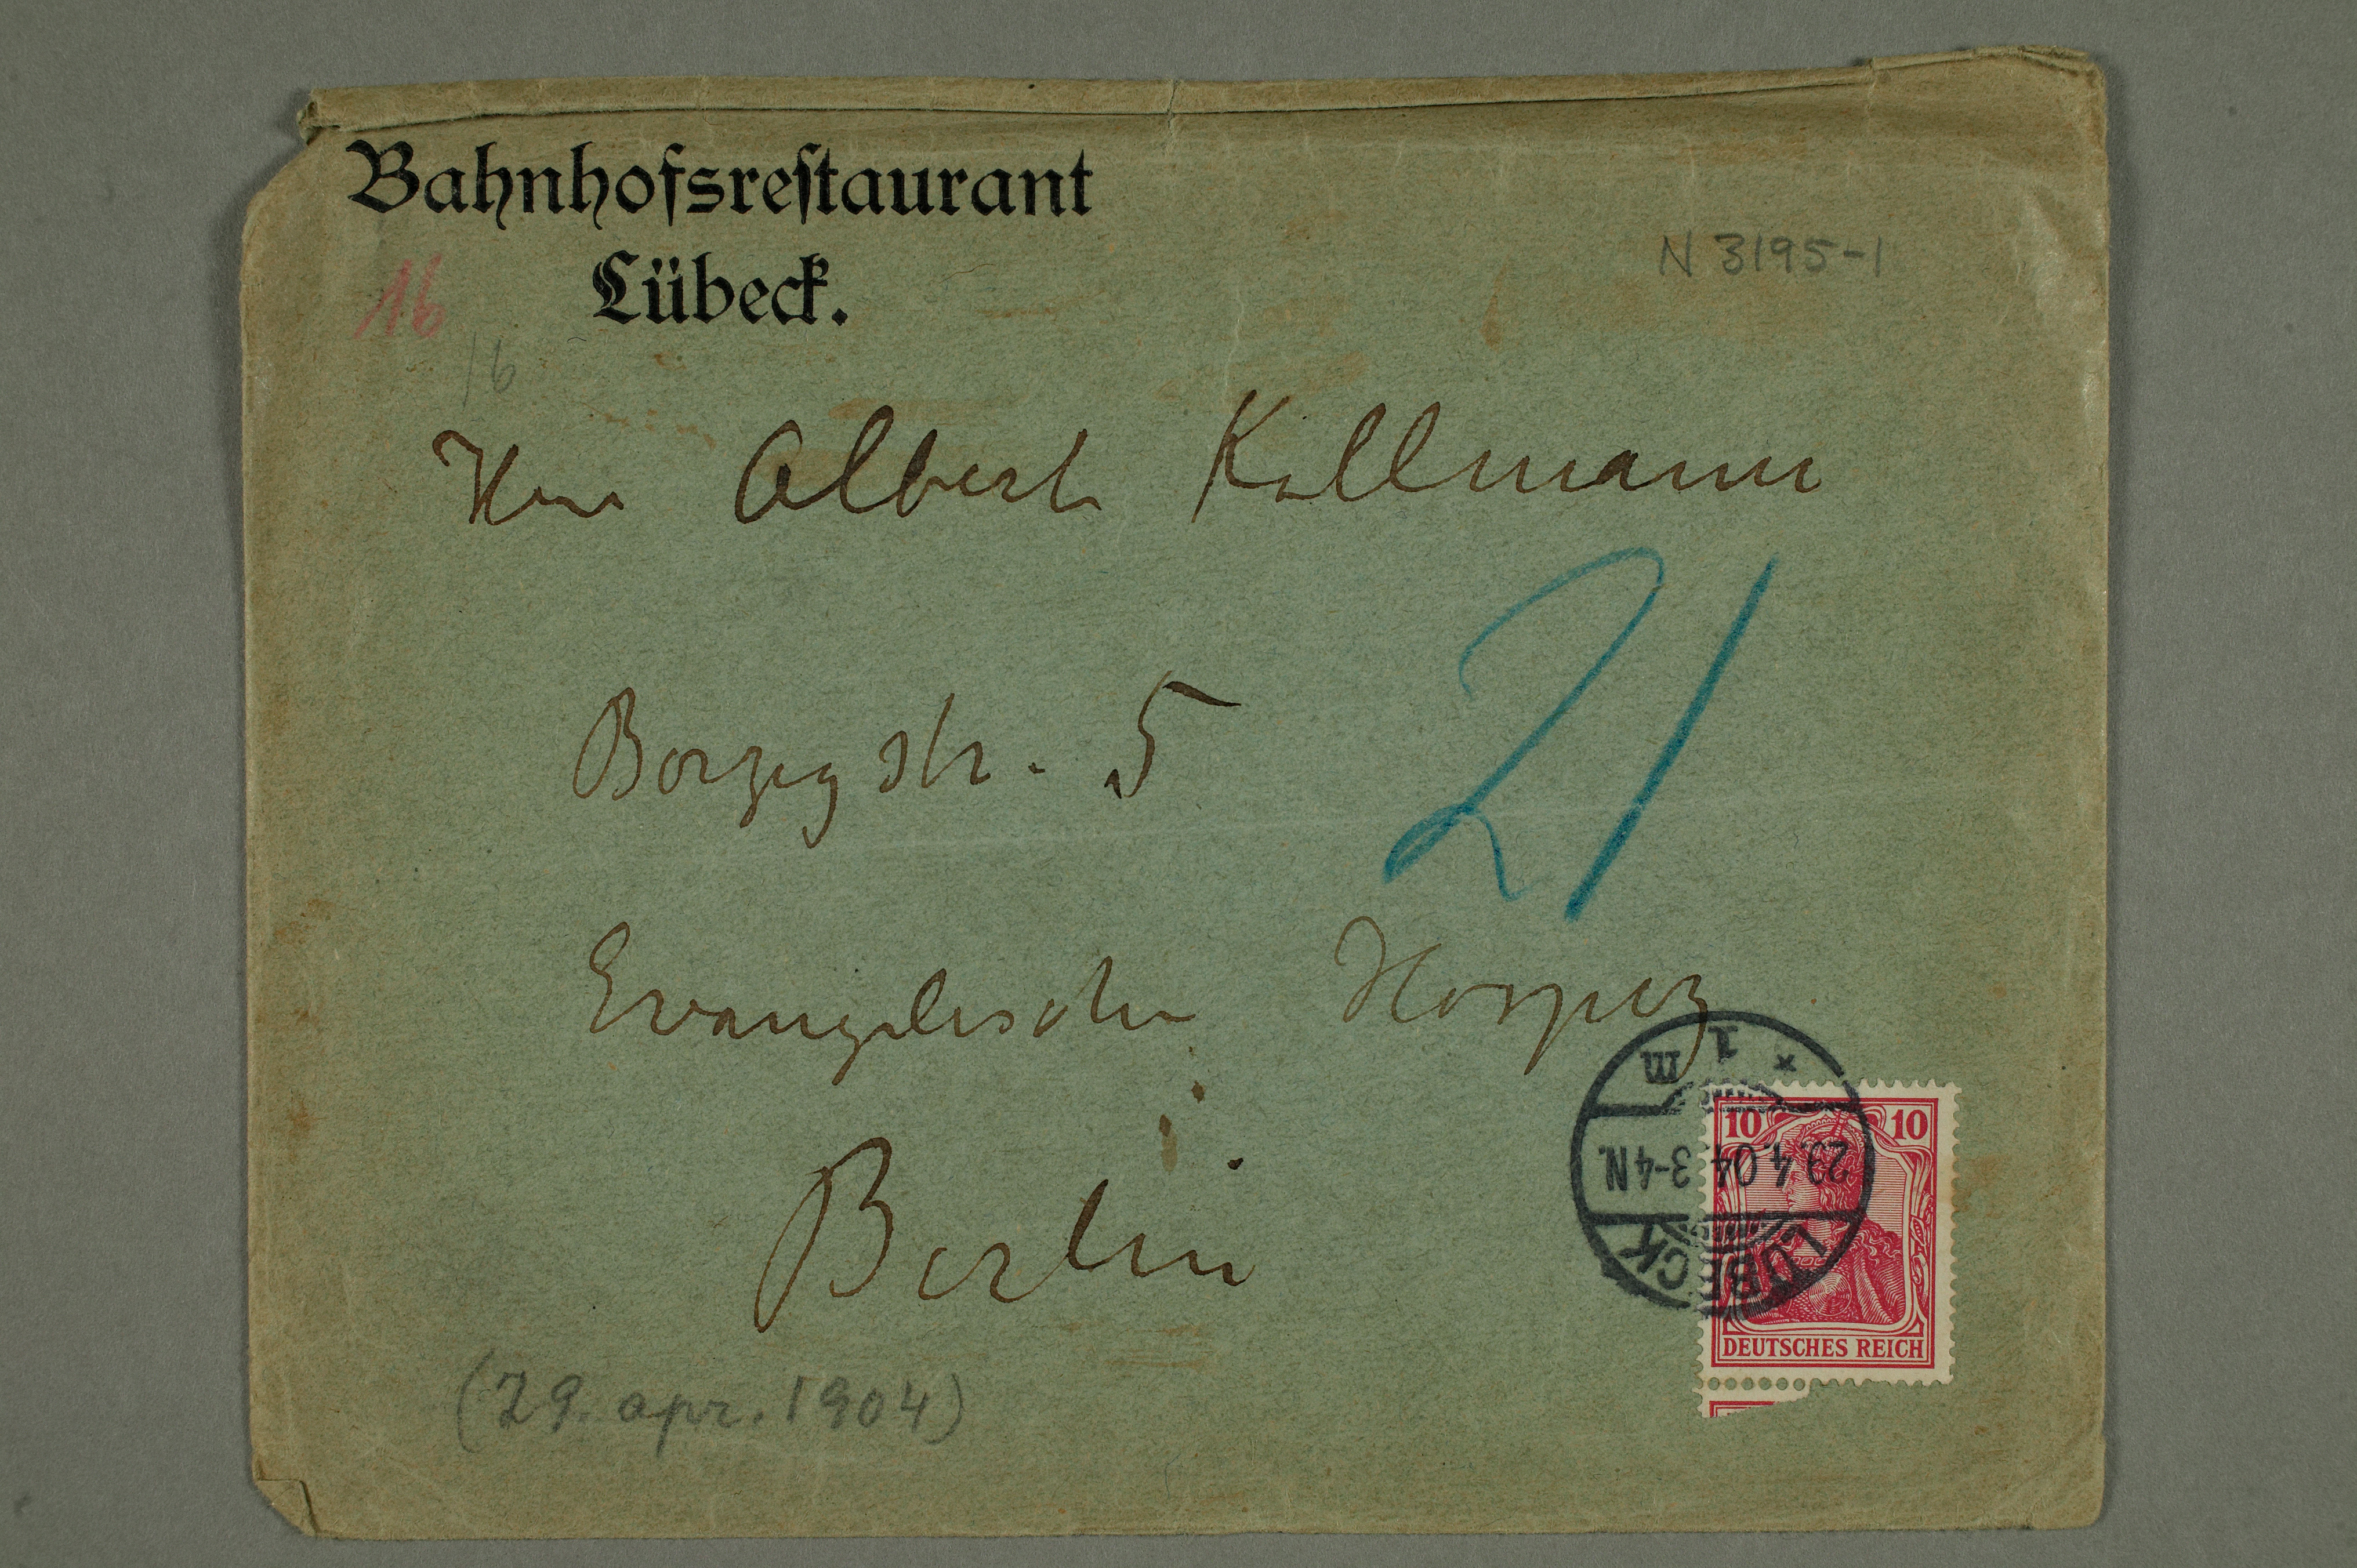 Bahnhofsrestaurant
Lübeck.
N 3195-1
16
16
Herr Albert Kollmann
Borzigstr. 5
21
Evangelischer Hospiz
Berlin
* 1 m
29.4.04.3-4N.
LÜBECK
10 10
DEUTSCHES REICH
(29. apr. 1904)